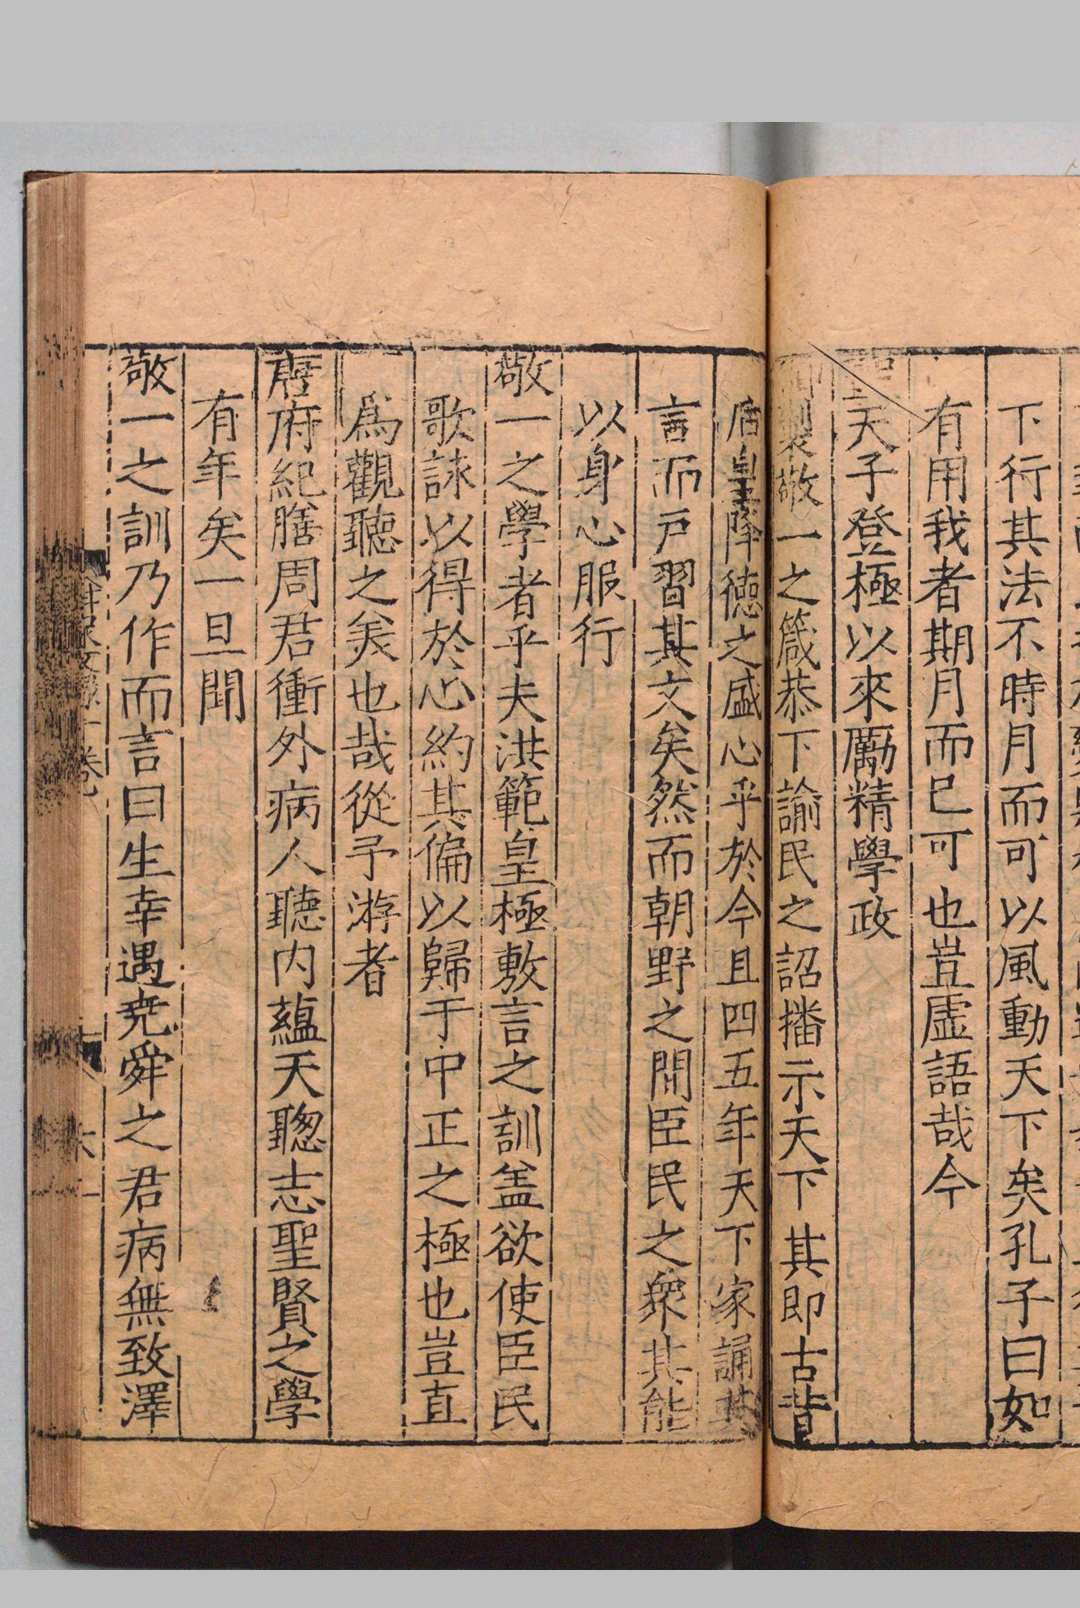 下行其法不時月而可以風動天下矣孔子曰如
有用我者期月而已可也豈虛語哉今
聖天子登極以來勵精學政
御製敬一之箴恭下諭民之詔播示天下其即古昔
后皇降德之盛心乎於今且四五年天下家誦其
言而戶習其文矣然而朝野之間臣民之衆其能
以身心服行
敬一之學者乎夫洪範皇極敷言之訓盖欲使臣民
歌詠以得於心約其偏以歸于中正之極也豈直
爲觀聽之美也哉從予游者
唐府紀膳周君衝外病人聽内蘊天聰志聖賢之學
有年矣一旦聞
敬一之訓乃作而言曰生幸遇堯舜之君病無致澤